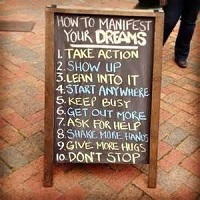 HOW TO MANIFEST
YOUR DREAMS
1. TAKE ACTION
2. SHOW UP
3. LEAN INTO IT
4. START ANYWHERE
5. KEEP BUSY
6. GET OUT MORE
7. ASK FOR HELP
8. SHAKE MORE HANDS
9. GIVE MORE HUGS
10. DON'T STOP